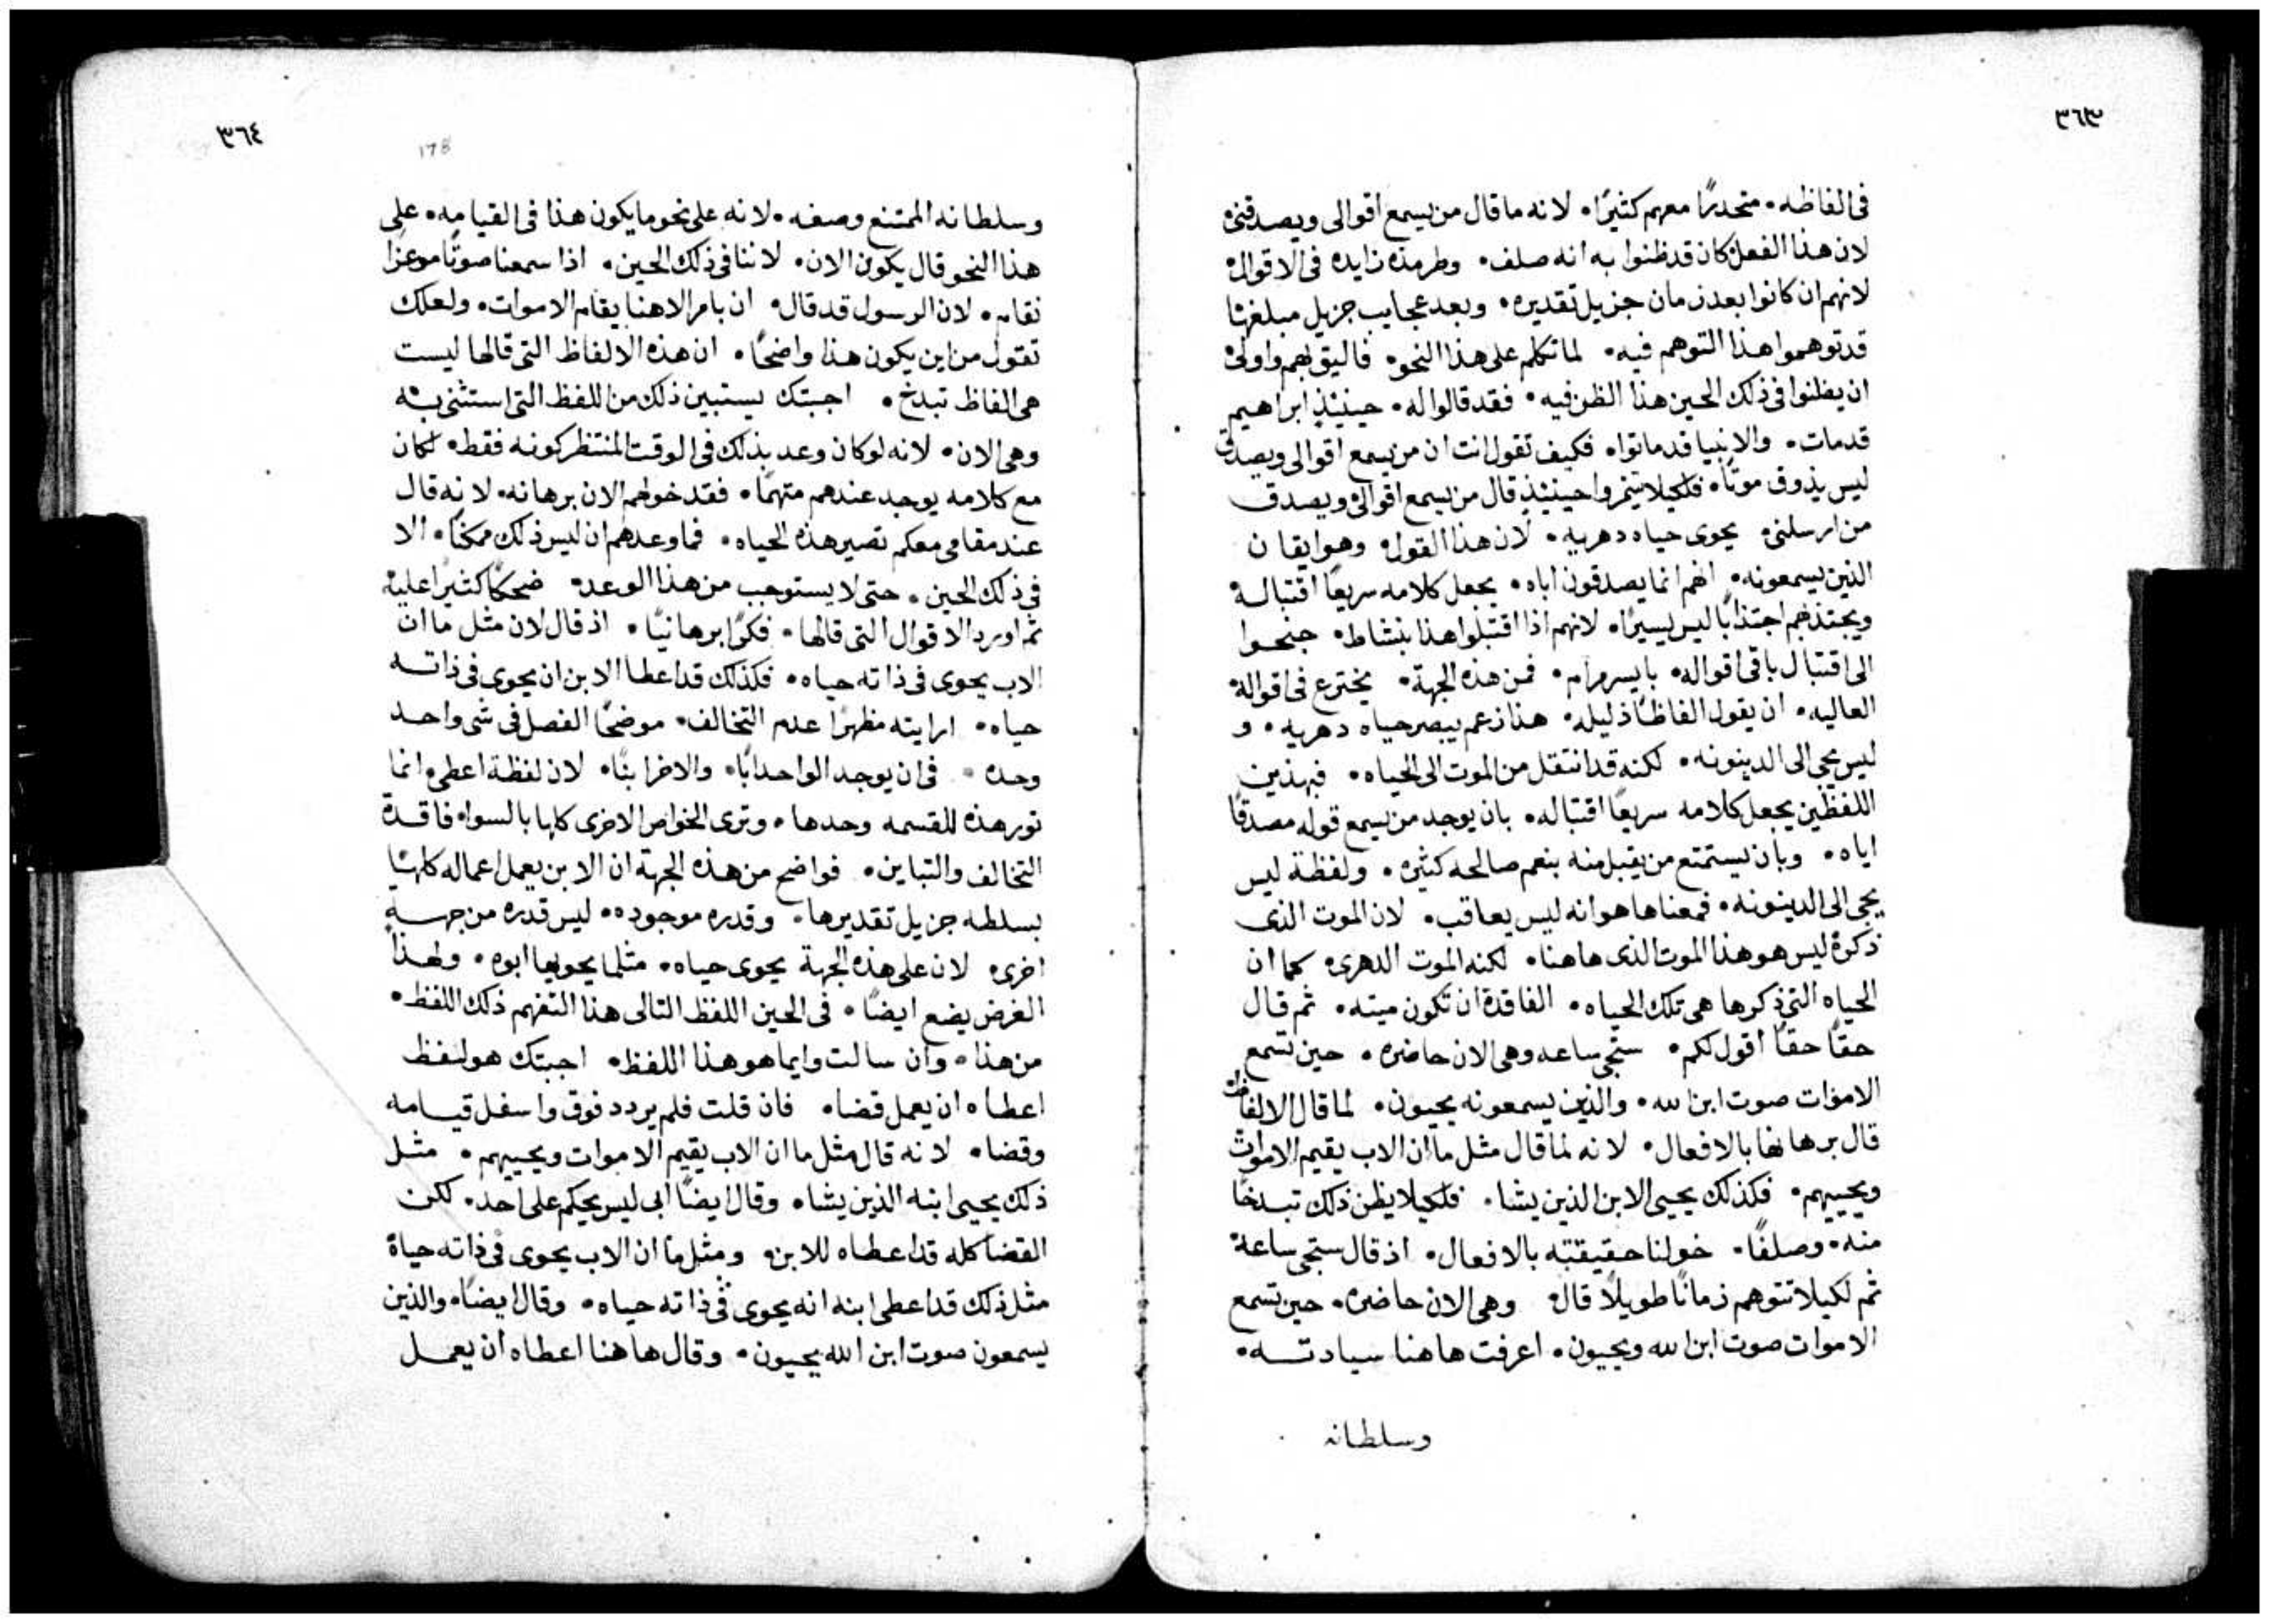 ٣٦٣
فى الفاظه. متحدرًا معهم كثيرًا. لانه ما قال من يسمع اقوالى ويصدقنى
لان هذا الفعل كان قد ظنوا به انه صلف. وطرمذه زايده فى الاقوال
لانهم ان كانوا بعد زمان جزيل تقديره. وبعد عجايب جزيل مبلغها
قد توهموا هذا التوهم فيه. لما تكلم على هذا النحو. فاليق بهم واولى
ان يظنوا فى ذلك الحين هذا الظن فيه. فقد قالوا له. حينيذٍ ابراهيم
قد مات. والانبيا قد ماتوا. فكيف تقول انت ان من يسمع اقوالى ويصدق
ليس يذوق موتًا. فلكيلا يتنمروا حينيذٍ قال من يسمع اقوالى ويصدق
من ارسلنى. يحوى حياه دهريه. لان هذا القول وهو ايقان
الذين يسمعونه. انهم انما يصدقون اباه. يجعل كلامه سريعًا اقتباله
ويجتذبهم اجتذابًا ليس يسيرًا. لانهم اذا اقتبلوا هذا بنشاط. جنحوا
الى اقتبال باقى اقواله. بايسر مرام. فمن هذه الجهة. يخترع فى اقواله
العاليه. ان يقول الفاظًا ذليله. هذا زعم يبصر حياه دهريه. و
ليس يجى الى الدينونه. لكنه قد انتقل من الموت الى الحياه. فبهذين
اللفظين يجعل كلامه سريعًا اقتباله. بان يوجد من يسمع قوله مصدقًا
اياه. وبان يستمتع من يقبل منه بنعم صالحه كثيره. ولفظة ليس
يجى الى الدينونه. فمعناها هو انه ليس يعاقب. لان الموت الذى
ذكره ليس هو هذا الموت الذى هاهنا. لكنه الموت الدهرى. كما ان
الحياه التى ذكرها هى تلك الحياه. الفاقدة ان تكون ميته. ثم قال
حقًا حقًا اقول لكم. ستجى ساعه وهى الان حاضره. حين تسمع
الاموات صوت ابن الله. والذين يسمعونه يحيون. لما قال الالفاظ
قال برهانها بالافعال. لانه لما قال مثل ما ان الاب يقيم الاموات
ويحييهم. فكذلك يحيى الابن الذين يشا. فلكيلا يظن ذلك تبدخًا
منه. وصلفًا. خولنا حقيقته بالافعال. اذ قال ستجى ساعة
ثم لكيلا تتوهم زمانًا طويلًا قال وهى الان حاضره. حين تسمع
الاموات صوت ابن الله ويحيون. اعرفت هاهنا سيادته.
وسلطانه
٣٦٤
178
وسلطانه الممتنع وصفه. لانه على نحو ما يكون هذا فى القيامه. على
هذا النحو قال يكون الان. لاننا فى ذلك الحين. اذا سمعنا صوتًا موعزًا
نقام. لان الرسول قد قال. ان بامر الاهنا يقام الاموات. ولعلك
تقول من اين يكون هذا واضحًا. ان هذه الالفاظ التى قالها ليست
هى الفاظ تبدخ. اجبتك يستبين ذلك من اللفظ التى استثنى به
وهى الان. لانه لو كان وعد بذلك فى الوقت المنتظر كونه فقط. لكان
مع كلامه يوجد عندهم متهمًا. فقد خولهم الان برهانه. لانه قال
عند مقامى معكم تصير هذه الحياه. فما وعدهم ان ليس ذلك ممكنًا. الا
فى ذلك الحين. حتى لا يستوجب من هذا الوعد. ضحكًا كثيرًا عليه
ثم اورد الاقوال التى قالها. فكرًا برهانيًا. اذ قال لان مثل ما ان
الاب يحوى فى ذاته حياه. فكذلك قد اعطا الابن ان يحوى فى ذاته
حياه. ارايته مظهرًا عدم التخالف. موضحًا الفصل فى شى واحد
وحده. فى ان يوجد الواحد ابًا. والاخر ابنًا. لان لفظة اعطى انما
تورد هذه القسمه وحدها. وترى الخواص الاخرى كلها بالسوا. فاقدة
التخالف والتباين. فواضح من هذه الجهة ان الابن يعمل اعماله كلها
بسلطه جزيل تقديرها. وقدره موجوده. ليس قدره من جهة
اخرى. لان على هذه الجهة يحوى حياه. مثلما يحويها ابوه. ولهذا
الغرض يضع ايضًا. فى الحين اللفظ التالى هذا التفهم ذلك اللفظ.
من هذا. وان سالت وايما هو هذا اللفظ. اجبتك هو لفظ
اعطاه ان يعمل قضا. فان قلت فلم يردد فوق واسفل قيامه
وقضا. لانه قال مثل ما ان الاب يقيم الاموات ويحييهم. مثل
ذلك يحيى ابنه الذين يشا. وقال ايضًا ابى ليس يحكم على احد. لكن
القضا كله قد اعطاه للابن. ومثل ما ان الاب يحوى فى ذاته حياة
مثل ذلك قد اعطى ابنه انه يحوى فى ذاته حياه. وقال ايضًا. والذين
يسمعون صوت ابن الله يحيون. وقال هاهنا اعطاه ان يعمل